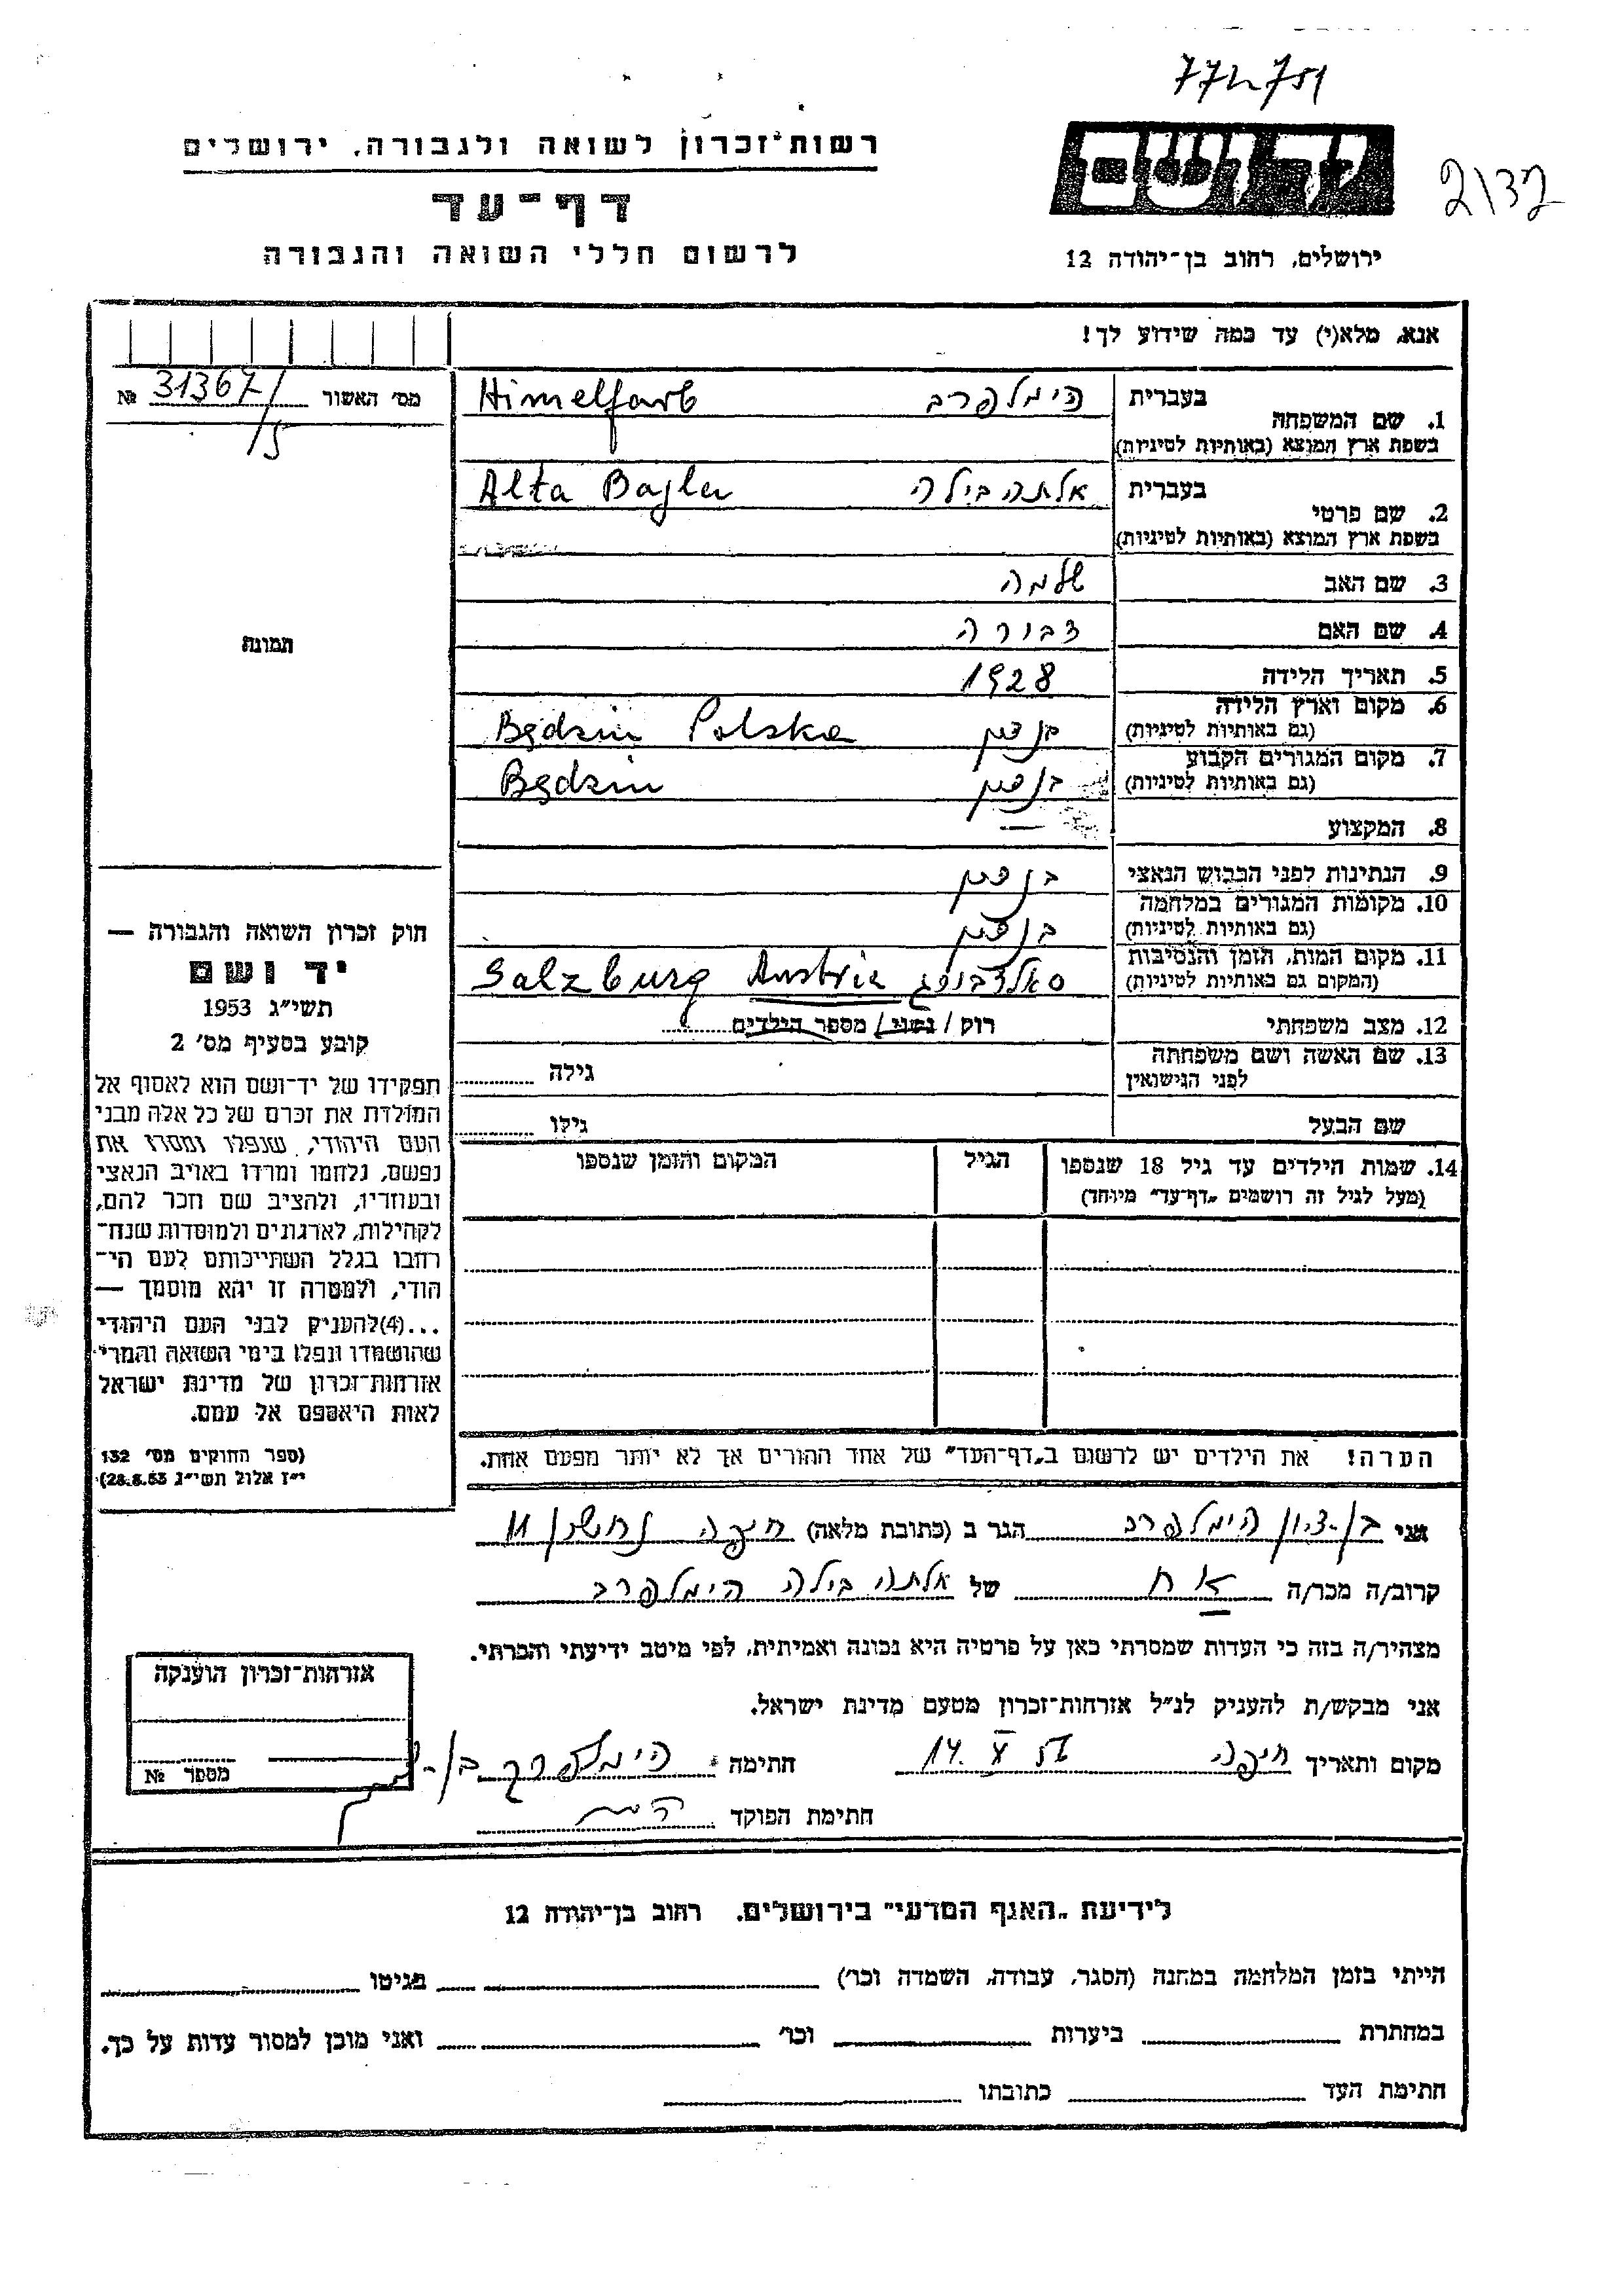 772751
רשות־זכרון לשואה ולגבורה, ירושלים
יד ושם
2132
דף־עד
לרשום חללי השואה והגבורה
ירושלים, רחוב בן־יהודה 12
אנא, מלא(י) עד כמה שידוע לך!
מס׳ האשור 31367/5 №
1. שם המשפחה בעברית הימלפרב Himelfarb
בשפת ארץ המוצא (באותיות לטיניות)
2. שם פרטי בעברית אלתה בילה Alta Bajla
בשפת ארץ המוצא (באותיות לטיניות)
3. שם האב שלמה
4. שם האם דבורה
5. תאריך הלידה 1928
6. מקום וארץ הלידה בנדzין Będzin Polska
(גם באותיות לטיניות)
7. מקום המגורים הקבוע בנדין Będzin
(גם באותיות לטיניות)
8. המקצוע —
9. הנתינות לפני הכבוש הנאצי בנדין
10. מקומות המגורים במלחמה בנדין
(גם באותיות לטיניות)
11. מקום המות, הזמן והנסיבות סאלצבורג Salzburg Austria
(המקום גם באותיות לטיניות)
12. מצב משפחתי רוק / נשוי / מספר הילדים
13. שם האשה ושם משפחתה גילה
לפני הנישואין
שם הבעל גילו
14. שמות הילדים עד גיל 18 שנספו הגיל המקום והזמן שנספו
(מעל לגיל זה רושמים „דף־עד״ מיוחד)
הערה! את הילדים יש לרשום ב„דף־העד״ של אחד ההורים אך לא יותר מפעם אחת.
תמונה
חוק זכרון השואה והגבורה —
יד ושם
תשי״ג 1953
קובע בסעיף מס׳ 2
תפקידו של יד־ושם הוא לאסוף אל
המולדת את זכרם של כל אלה מבני
העם היהודי, שנפלו ומסרו את
נפשם, נלחמו ומרדו באויב הנאצי
ובעוזריו, ולהציב שם וזכר להם,
לקהילות, לארגונים ולמוסדות שנח־
רבו בגלל השתייכותם לעם הי־
הודי, ולמטרה זו יהא מוסמך —
...(4) להעניק לבני העם היהודי
שהושמדו ונפלו בימי השואה והמרי
אזרחות־זכרון של מדינת ישראל
לאות היאספם אל עמם.
(ספר החוקים מס׳ 132
י״ז אלול תשי״ג 28.8.53)
אני בן-ציון הימלפרב הגר ב (כתובת מלאה) חיפה נחשון 11
קרוב/ה מכר/ה אח של אלתה בילה הימלפרב
מצהיר/ה בזה כי העדות שמסרתי כאן על פרטיה היא נכונה ואמיתית, לפי מיטב ידיעתי והכרתי.
אני מבקש/ת להעניק לנ״ל אזרחות־זכרון מטעם מדינת ישראל.
מקום ותאריך חיפה 14. V חתימה הימלפרב בן-
חתימת הפוקד
אזרחות־זכרון הוענקה
מספר №
לידיעת „האגף המדעי״ בירושלים, רחוב בן־יהודה 12
הייתי בזמן המלחמה במחנה (הסגר, עבודה, השמדה וכו׳) בגיטו
במחתרת ביערות וכו׳ ואני מוכן למסור עדות על כך.
חתימת העד כתובתו